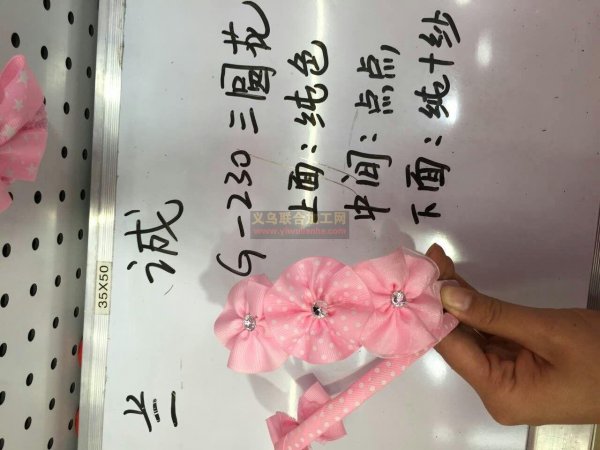 35X50
诚
G-230 三圆花
上面：纯色
中间：点点,
下面：纯+纱
义乌联合加工网
www.yiwulianhe.com